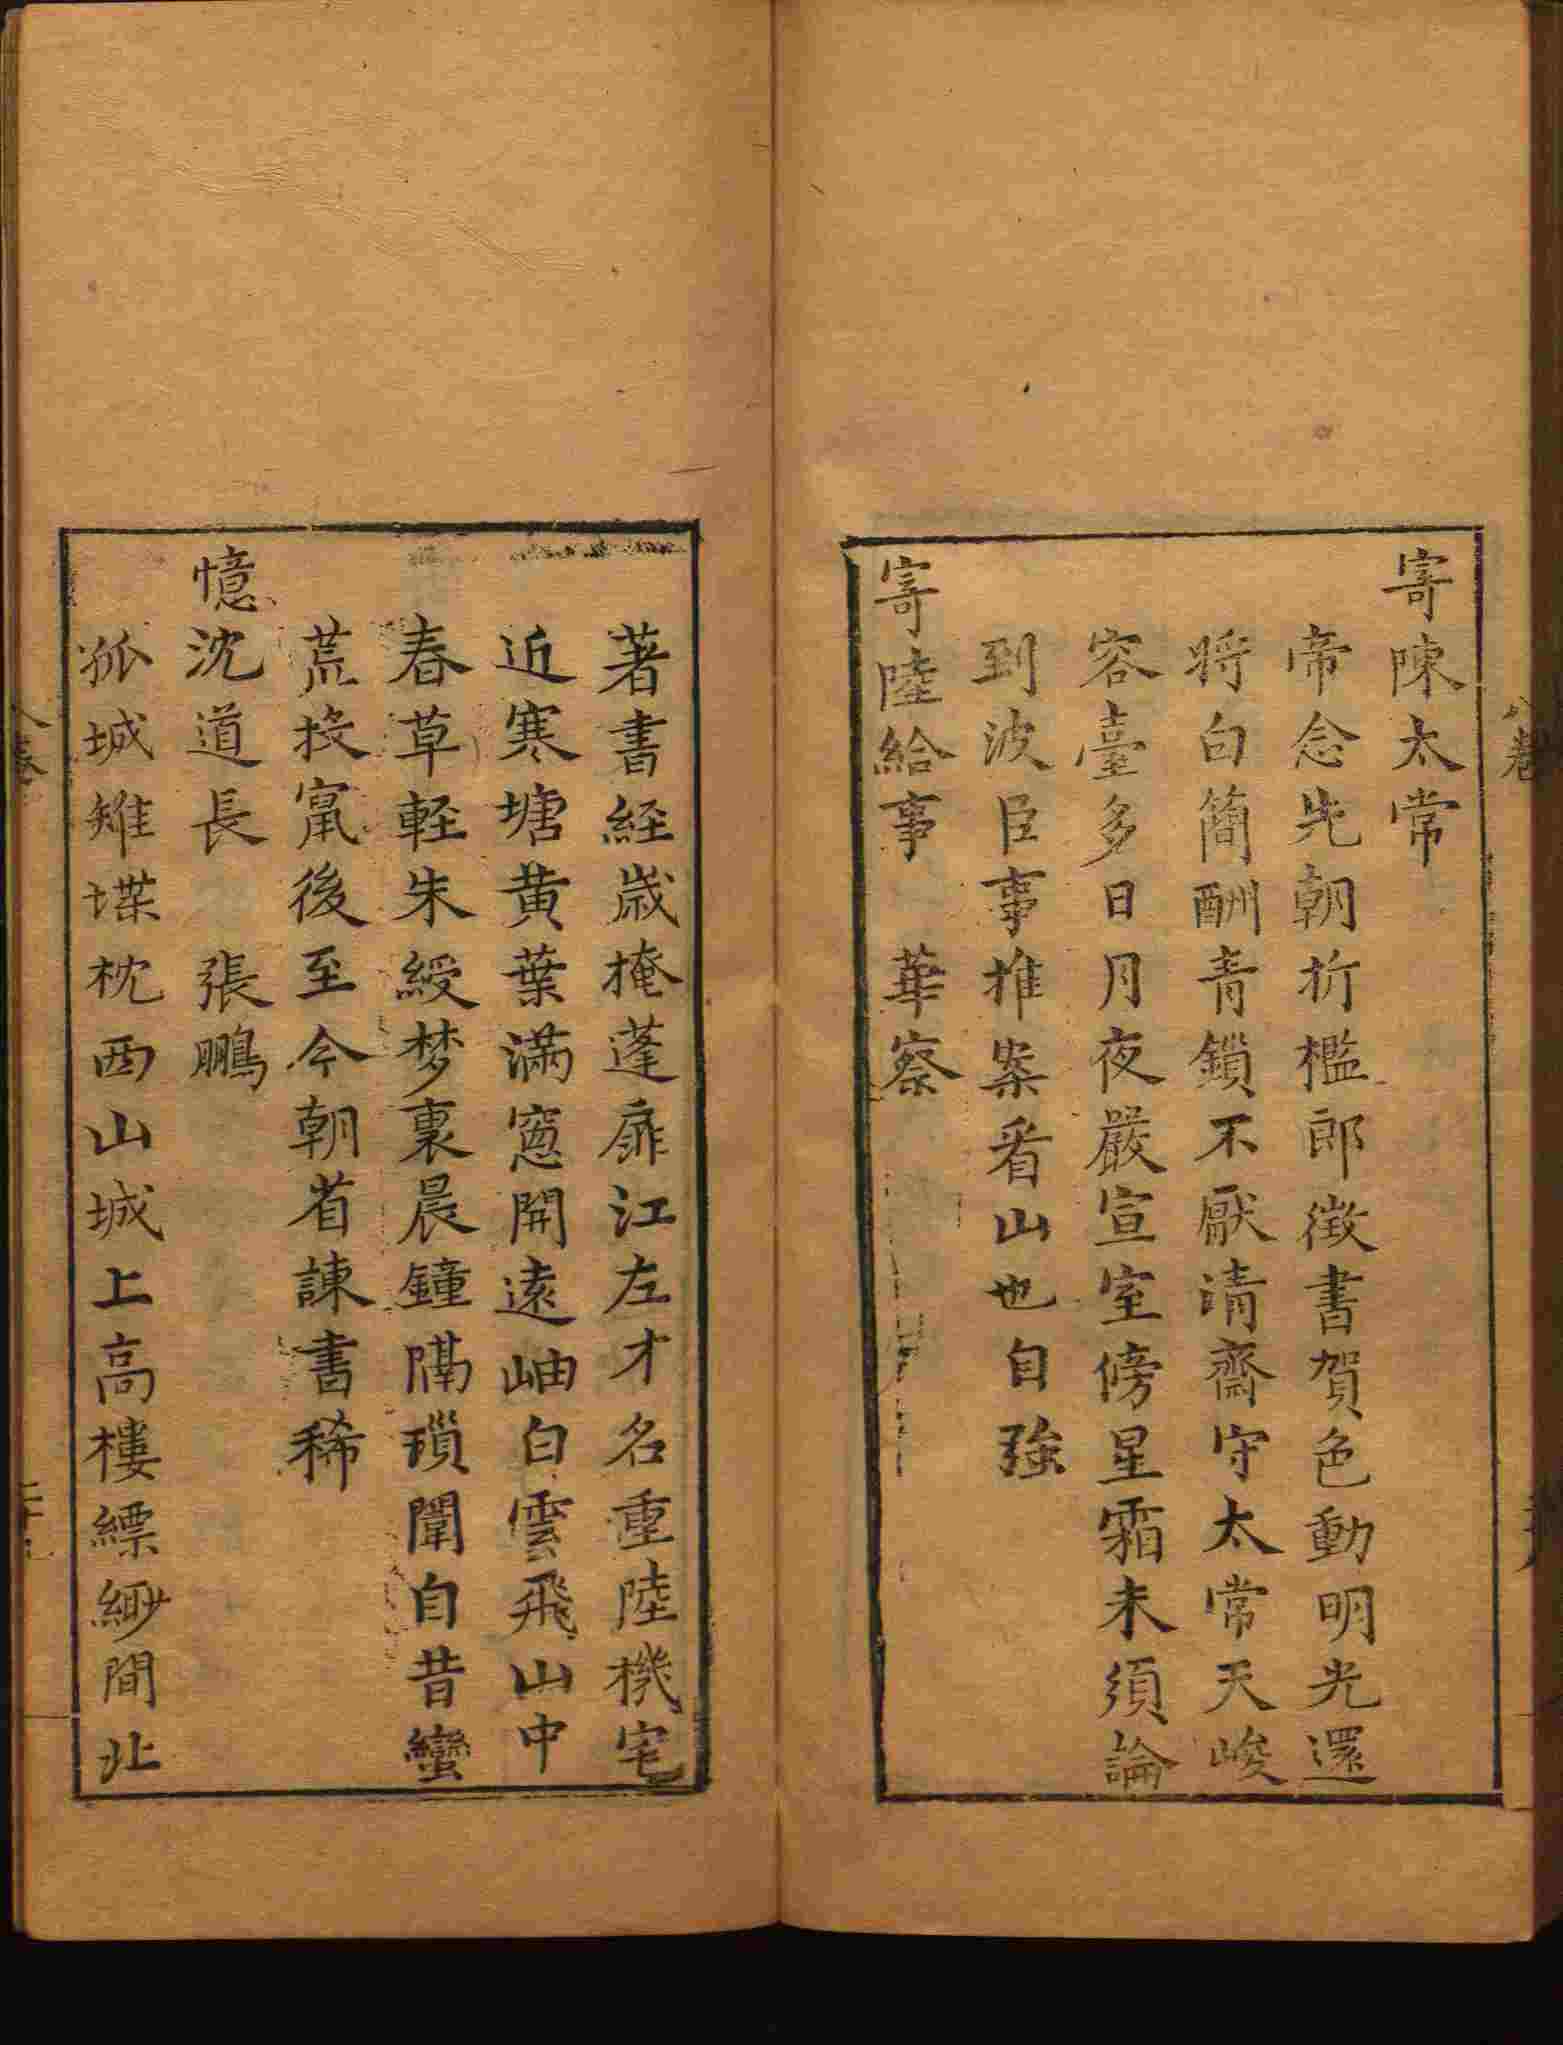 寄陳太常
帝念先朝折檻郎徵書賀色動明光還
將白簡酬青鎖不厭清齋守太常天峻
容臺多日月夜嚴宣室傍星霜未須論
到波臣事推案看山也自強
寄陸給事　華察
著書経歲掩蓬扉江左才名重陸機宅
近寒塘黄葉滿窻開遠岫白雲飛山中
春草軽朱綬梦裏晨鐘隔瑣闈自昔蠻
荒投竄後至今朝省諫書稀
憶沈道長　張鵬
孤城雉堞枕西山城上高樓縹緲間北